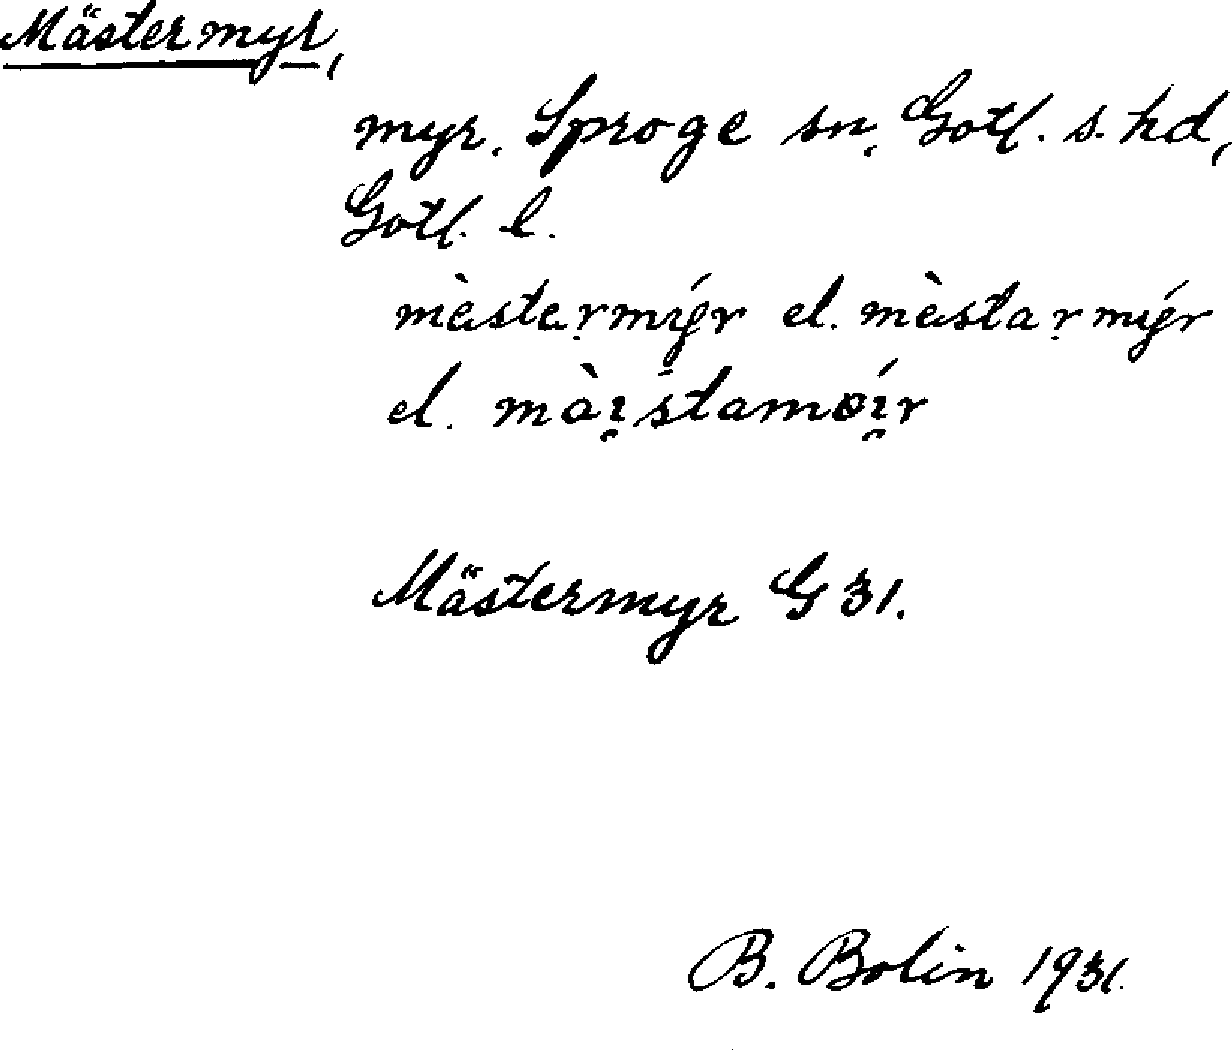 Mästermyr,
myr. Sproge sn, Gotl. s. hd,
Gotl. l.
mèstermýr el. mèstarmýr
el. mòi̯stamɒí̯r
Mästermyr G 31.
B. Bolin 1931.